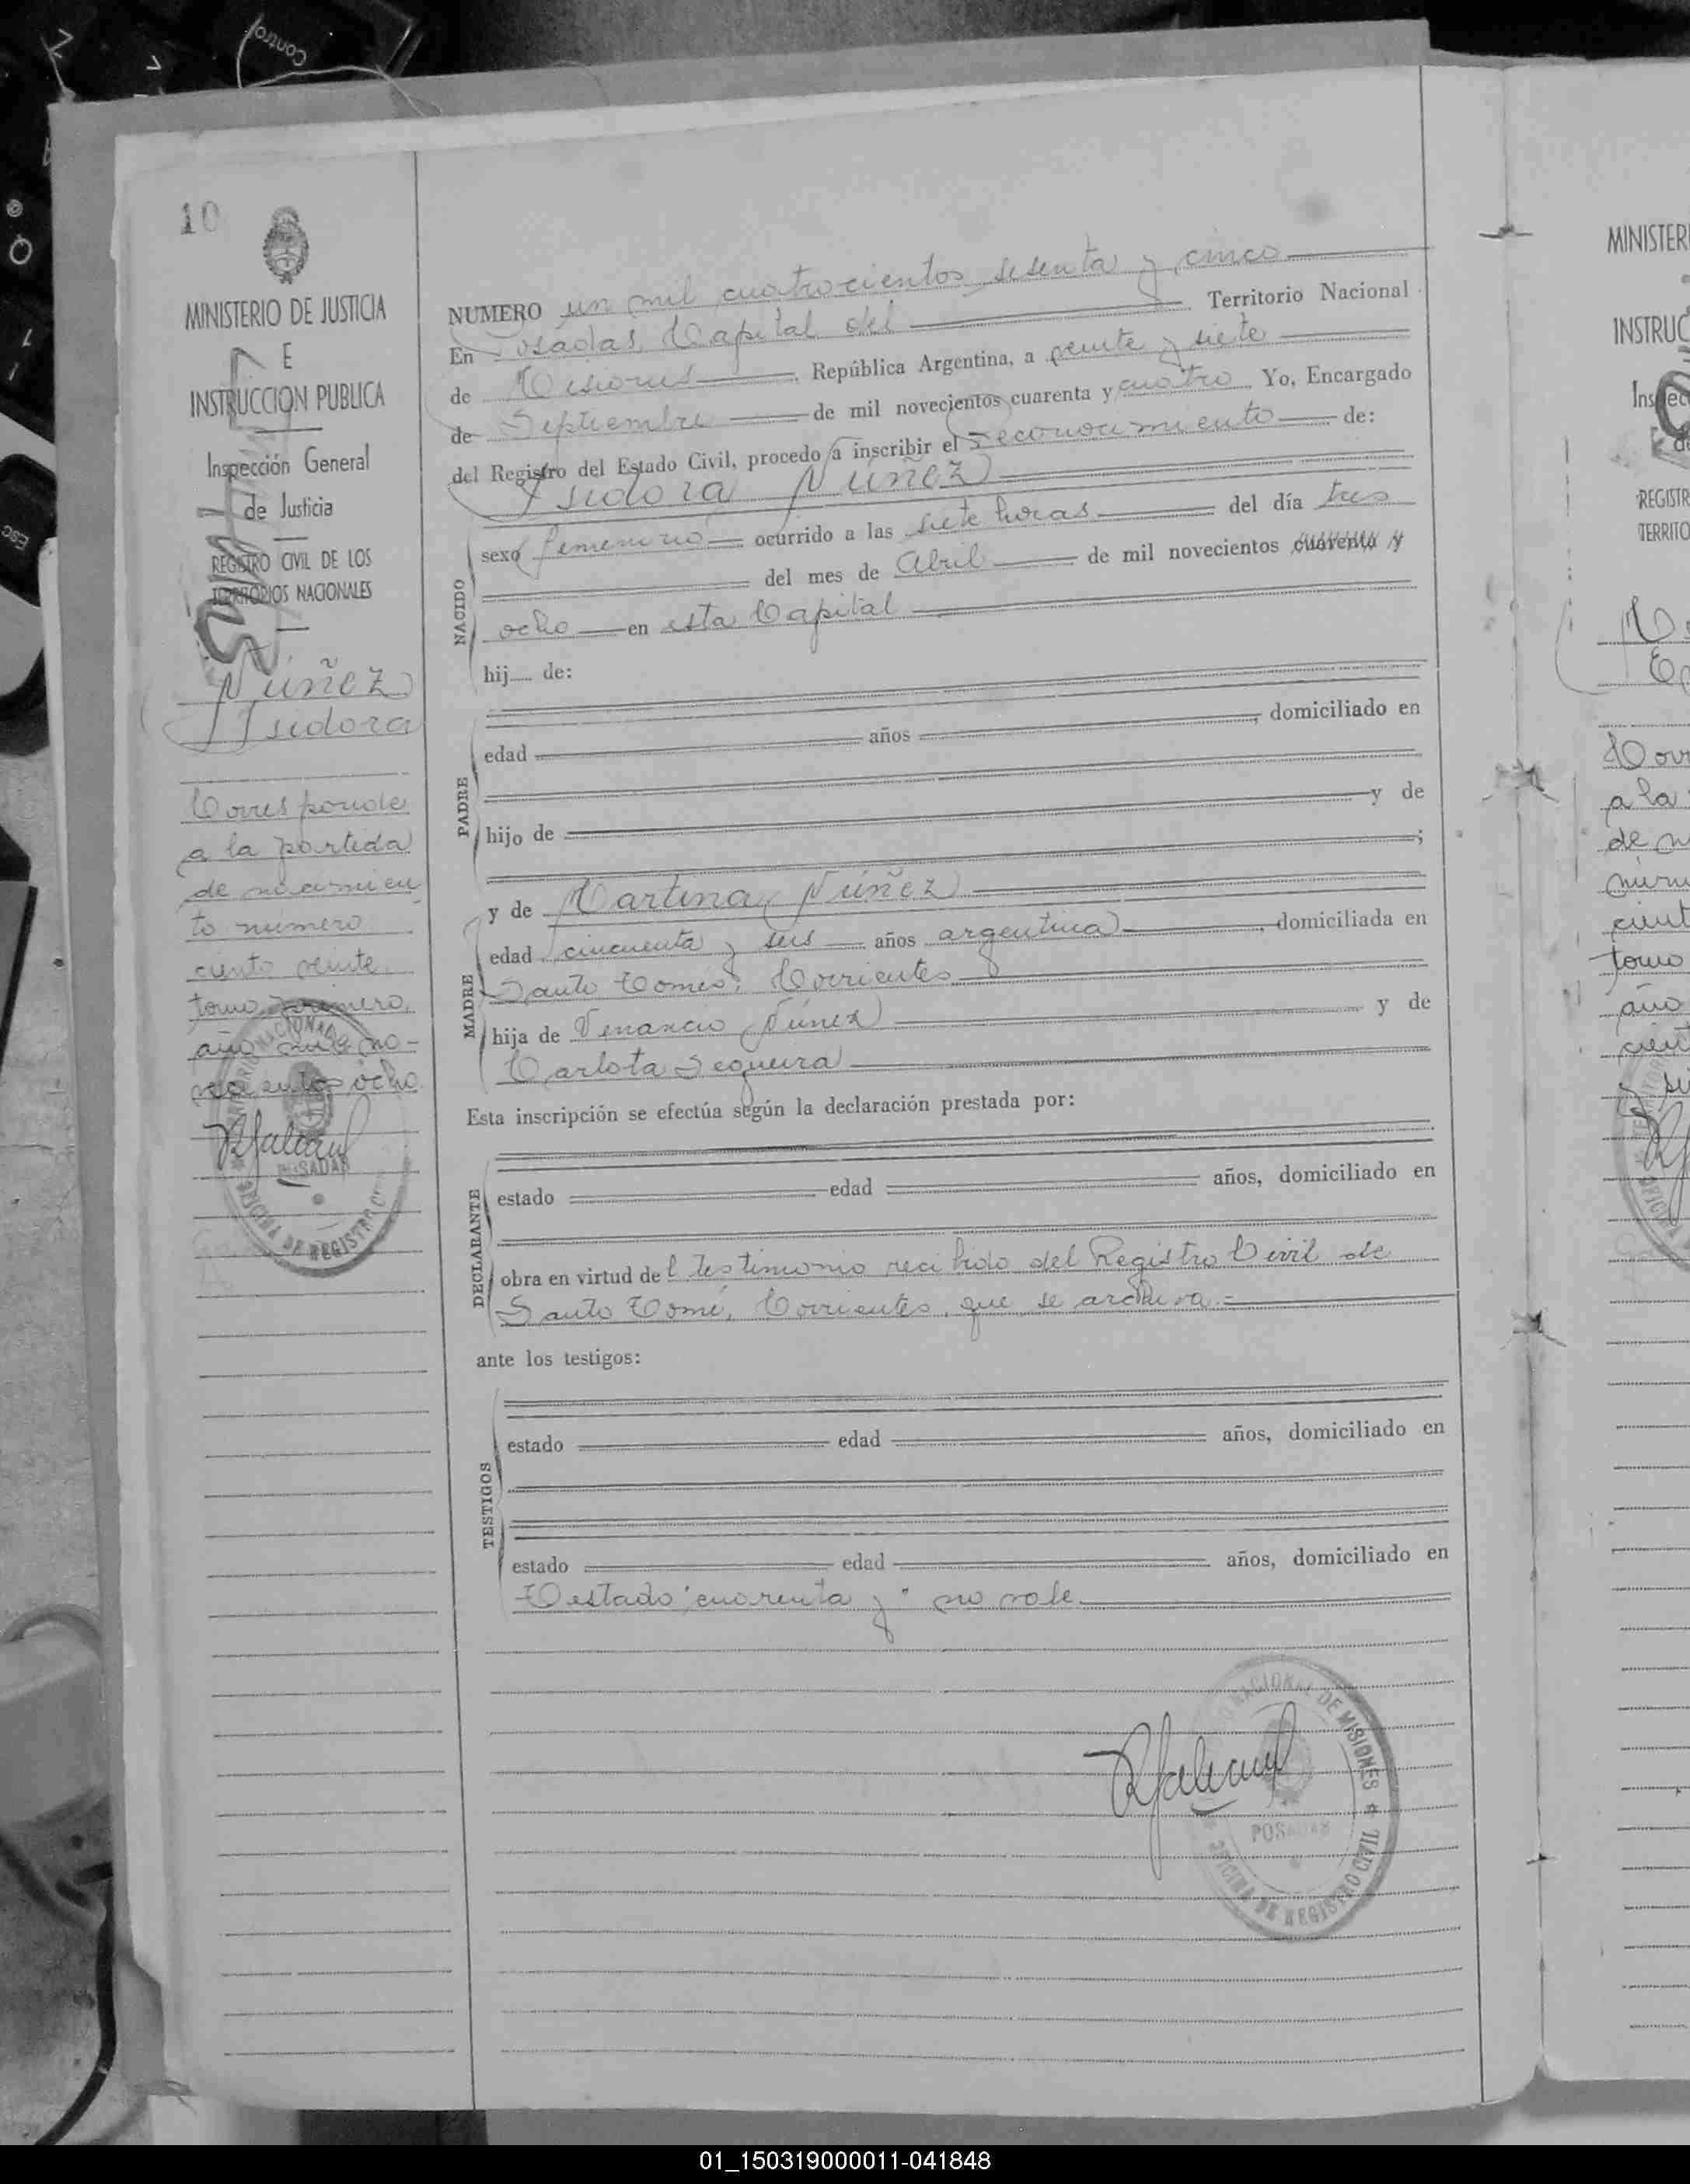 Control
Z
Esc
10
MINISTERIO DE JUSTICIA
E
INSTRUCCION PUBLICA
Inspección General
de Justicia
REGISTRO CIVIL DE LOS
TERRITORIOS NACIONALES
Núñez
Isidora
Corresponde
a la partida
de nacimien
to número
ciento veinte
tomo primero,
año mil no-
vecientos ocho
POSADAS
OFICINA DE REGISTRO
NUMERO un mil cuatrocientos sesenta y cinco
En Posadas, Capital del Territorio Nacional
de Misiones, República Argentina, a veinte y siete
de Septiembre de mil novecientos cuarenta y cuatro Yo, Encargado
del Registro del Estado Civil, procedo a inscribir el reconocimiento de:
Isidora Núñez
NACIDO
sexo femenino ocurrido a las siete horas del día tres
del mes de Abril de mil novecientos cuarenta y
ocho en esta Capital
hij..... de:
PADRE
edad años , domiciliado en
hijo de y de
;
y de Martina Núñez
MADRE
edad cincuenta y seis años argentina, domiciliada en
Santo Tomé, Corrientes
hija de Venancio Núñez y de
Carlota Sequeira
Esta inscripción se efectúa según la declaración prestada por:
DECLARANTE
estado edad años, domiciliado en
obra en virtud del testimonio recibido del Registro Civil de
Santo Tomé, Corrientes, que se archiva.=
ante los testigos:
TESTIGOS
estado edad años, domiciliado en
estado edad años, domiciliado en
Testado "cuarenta y" no vale
NACIONAL DE MISIONES
POSADAS
OFICINA DE REGISTRO CIVIL
MINISTERI
INSTRUC
Inspec
REGISTR
TERRITO
a la
de n
núm
cient
tomo
año
01_150319000011-041848